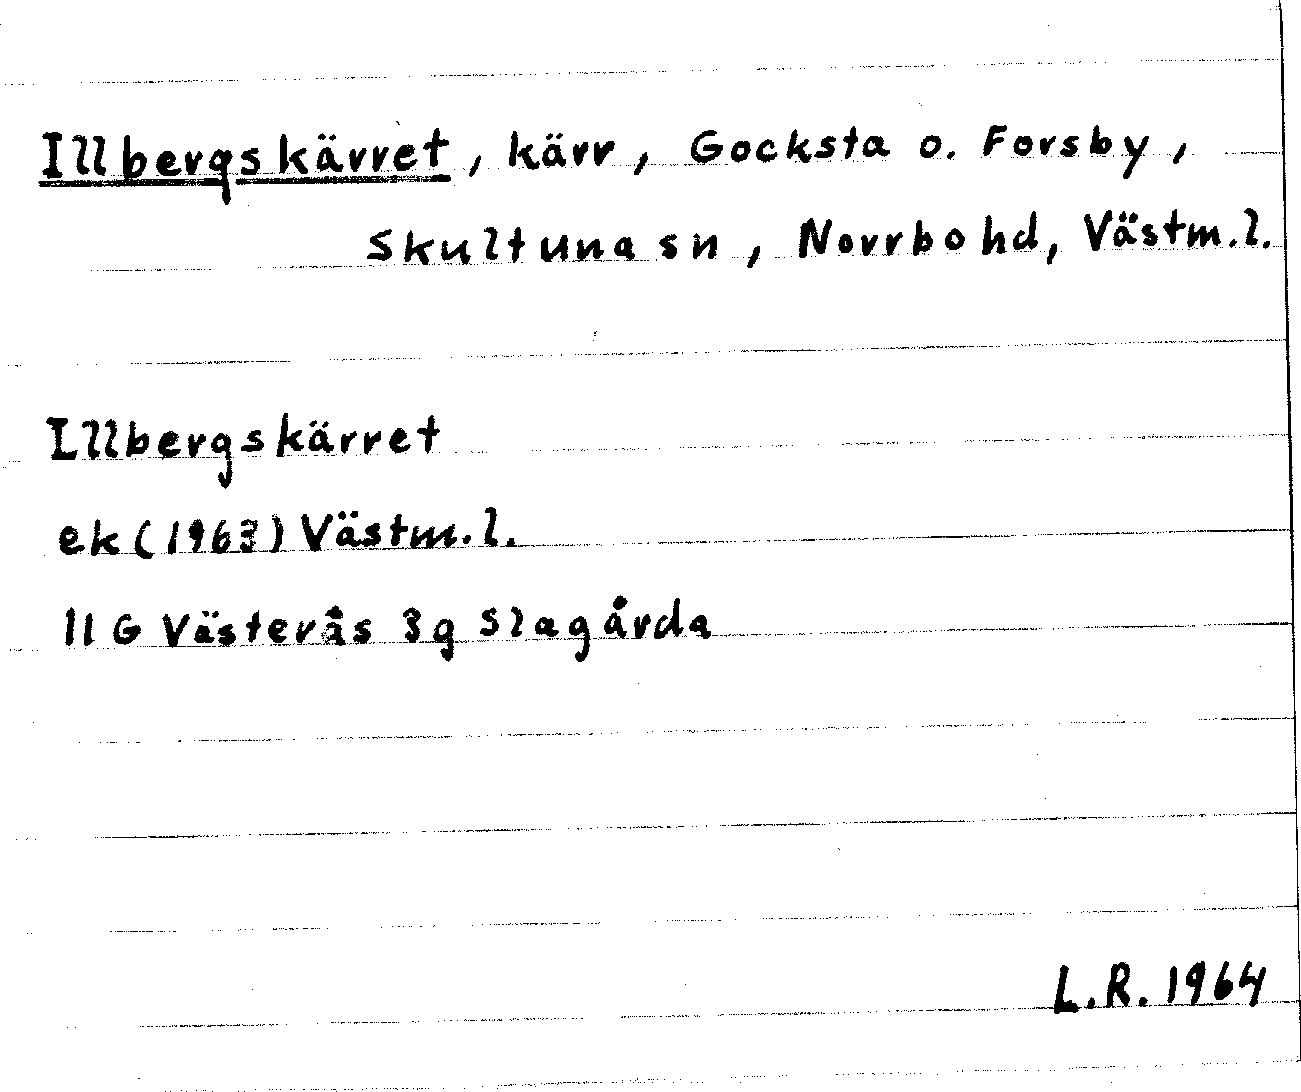 Illbergskärret, kärr, Gocksta o. Forsby,
Skultuna sn, Norrbo hd, Västm.l.
Illbergskärret
ek (1963) Västm.l.
11 G Västerås 3g Slagårda
L.R. 1964